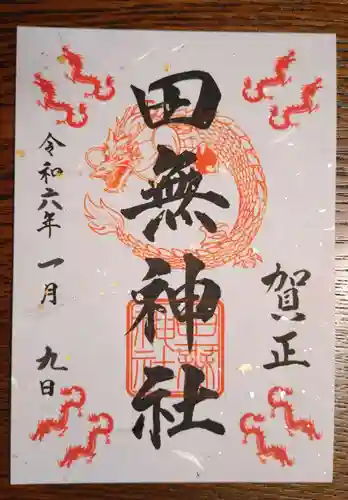 賀正
田無神社
令和六年 一月 九日